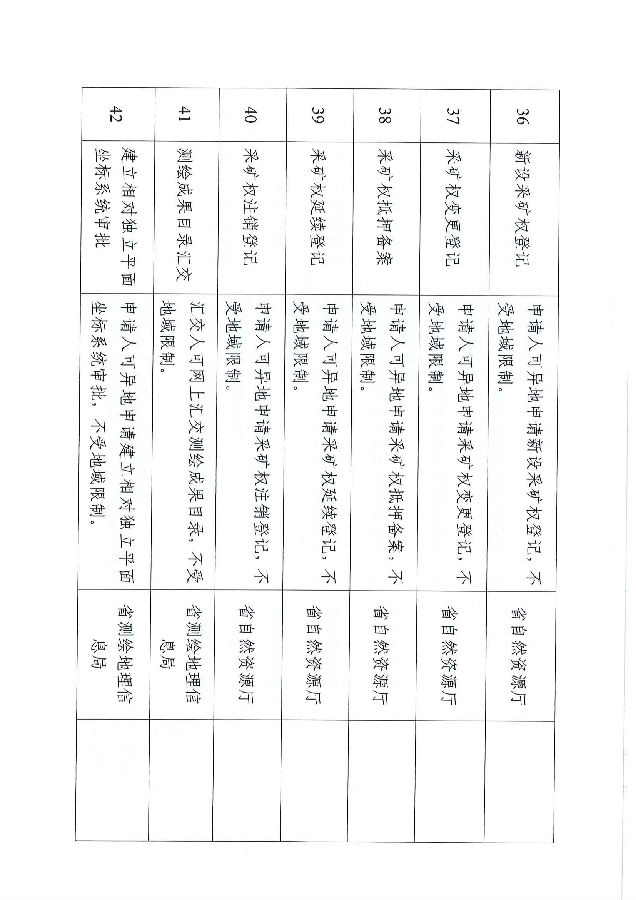 36
新设采矿权登记
申请人可异地申请新设采矿权登记，不
受地域限制。
省自然资源厅
37
采矿权变更登记
申请人可异地申请采矿权变更登记，不
受地域限制。
省自然资源厅
38
采矿权抵押备案
申请人可异地申请采矿权抵押备案，不
受地域限制。
省自然资源厅
39
采矿权延续登记
申请人可异地申请采矿权延续登记，不
受地域限制。
省自然资源厅
40
采矿权注销登记
申请人可异地申请采矿权注销登记，不
受地域限制。
省自然资源厅
41
测绘成果目录汇交
汇交人可网上汇交测绘成果目录，不受
地域限制。
省测绘地理信
息局
42
建立相对独立平面
坐标系统审批
申请人可异地申请建立相对独立平面
坐标系统审批，不受地域限制。
省测绘地理信
息局